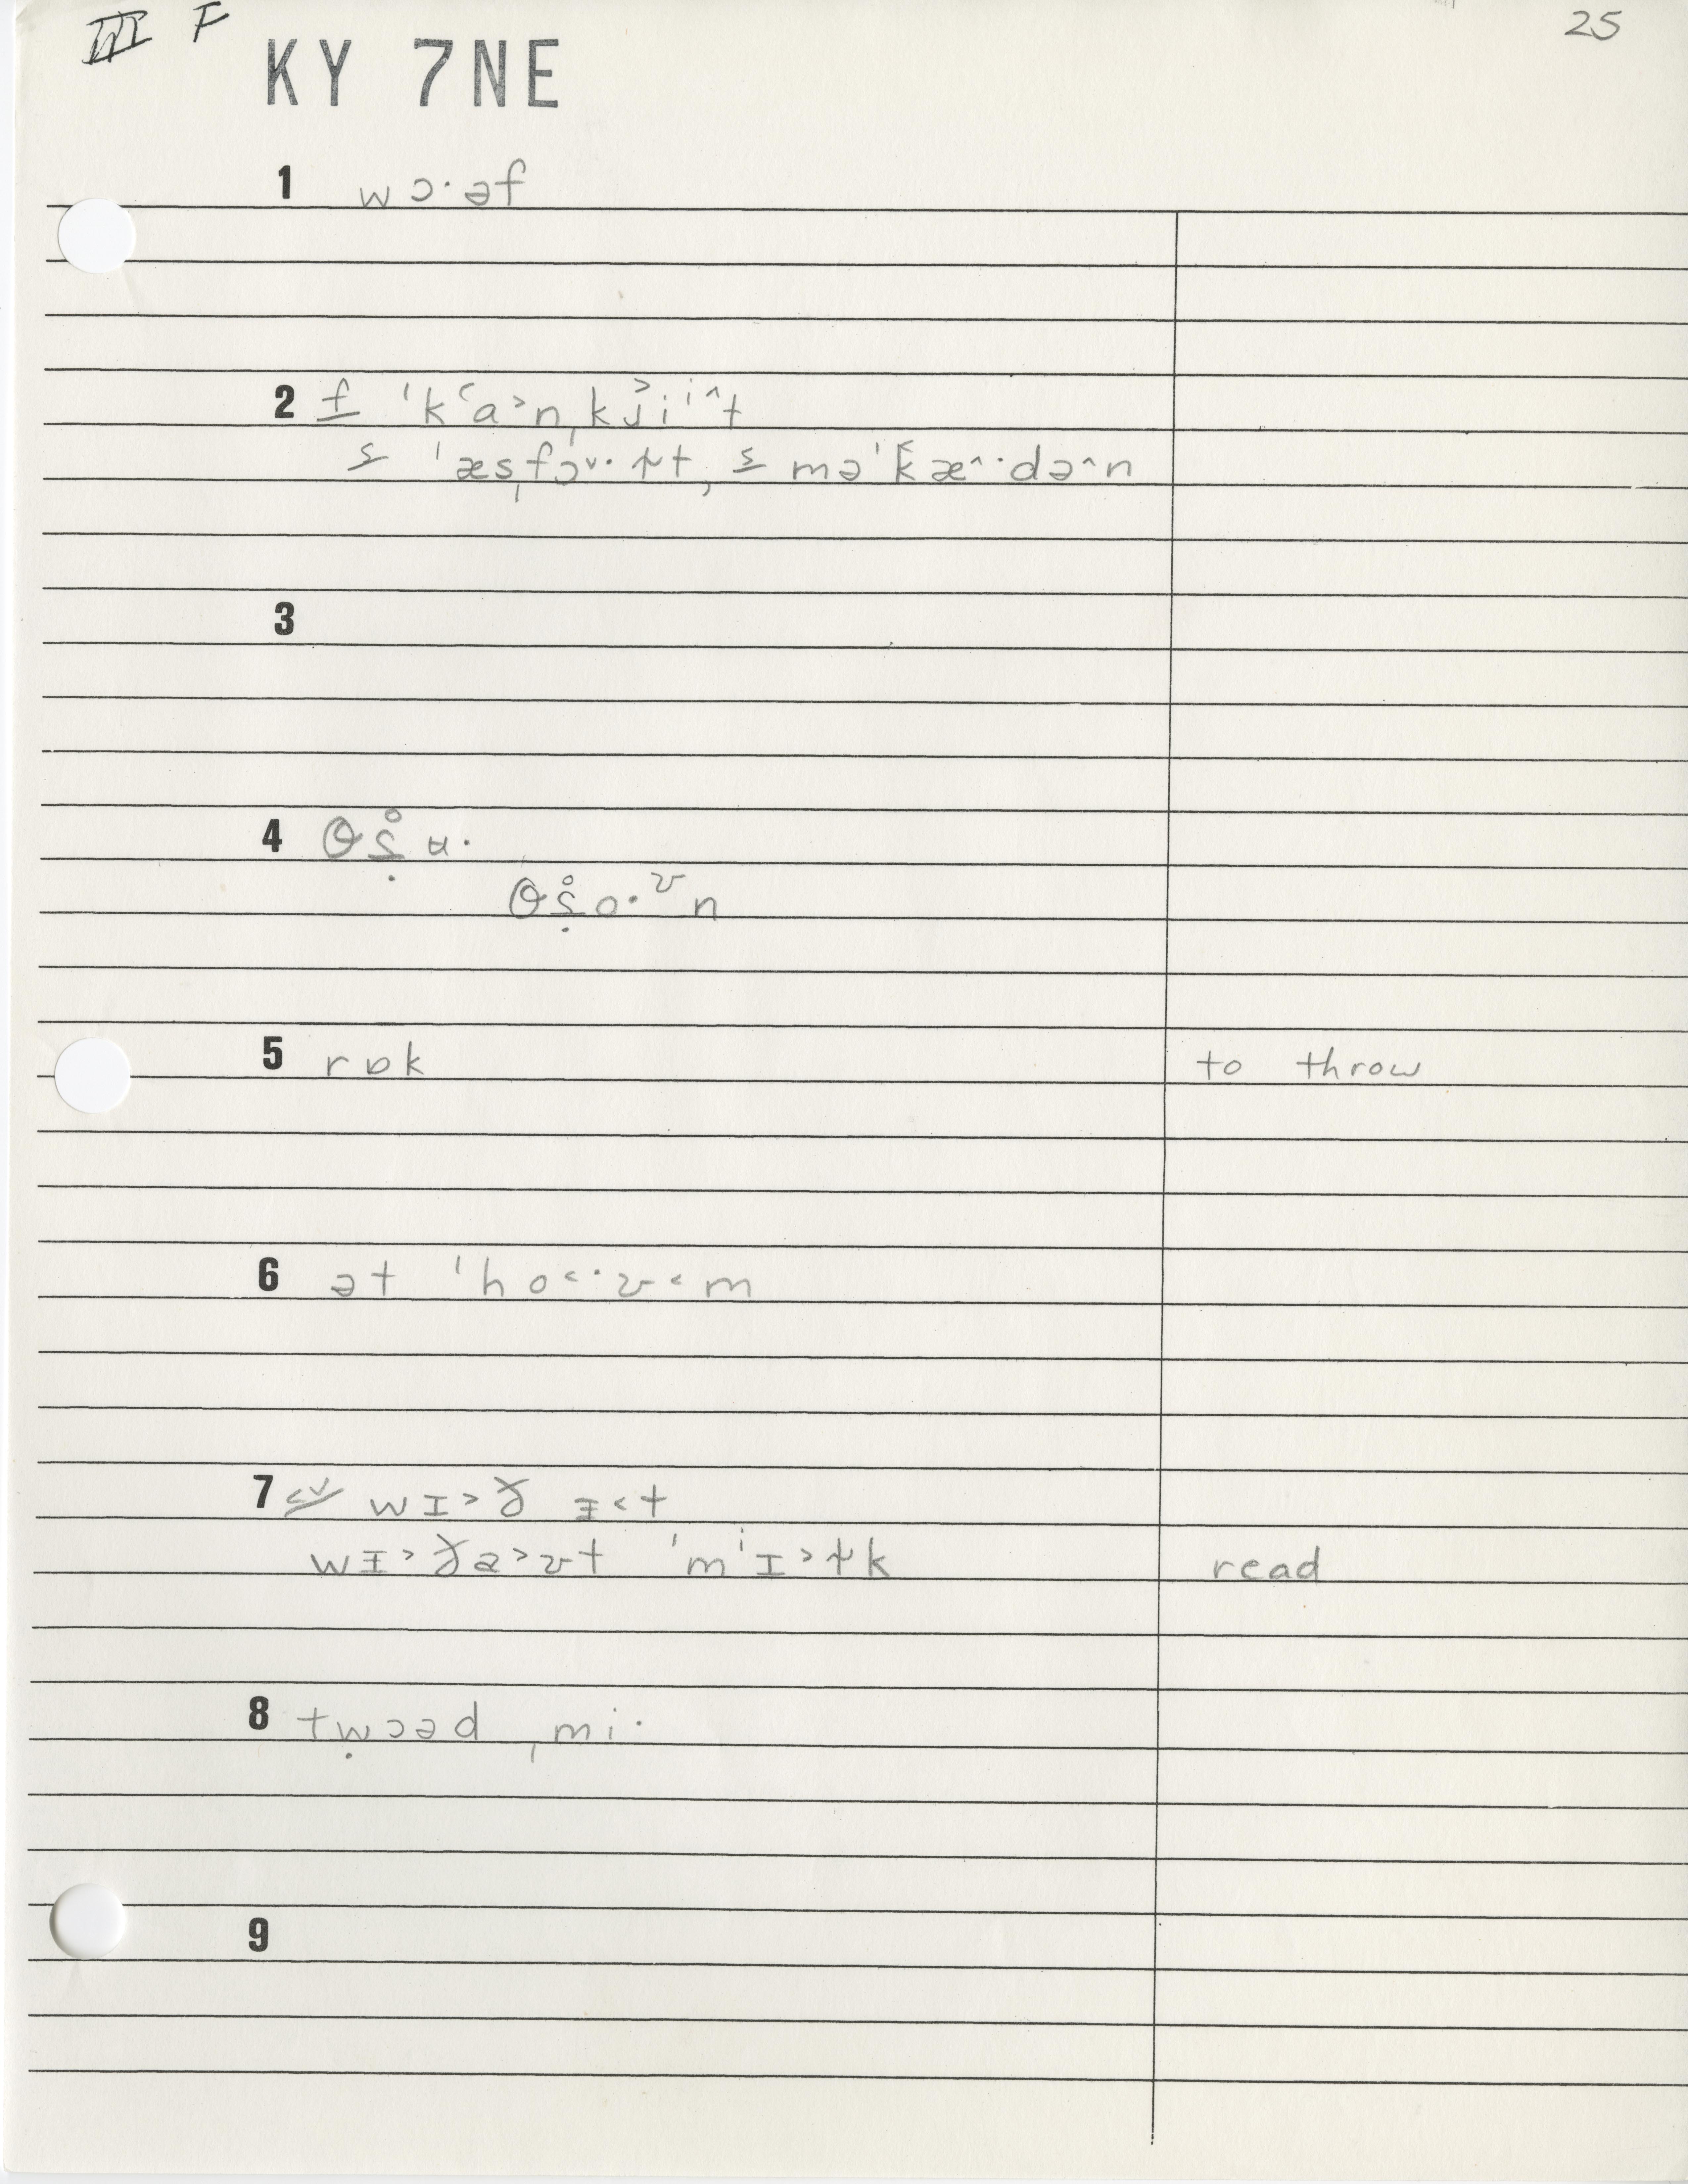 III F
25
KY 7NE
1 wɔ·əf
2 f̲ ˈk˂a˃nˌkɹ̌iⁱ^t
s̲ ˈæsˌfɔ˅·ɫt, s̲ məˈk̃æ^·də^n
3
4 θʂ̥ʉ·
θʂ̥o·ᶹn
5 rɒk to throw
6 ət ˈho˂·ʊ˂m
7 wɪ˃ɤ ɪ̵˂t
wɪ̵˃ɤə˃ʊt ˈmⁱɪ˃ɫk read
8 tẉɔəd ˌmi·
9